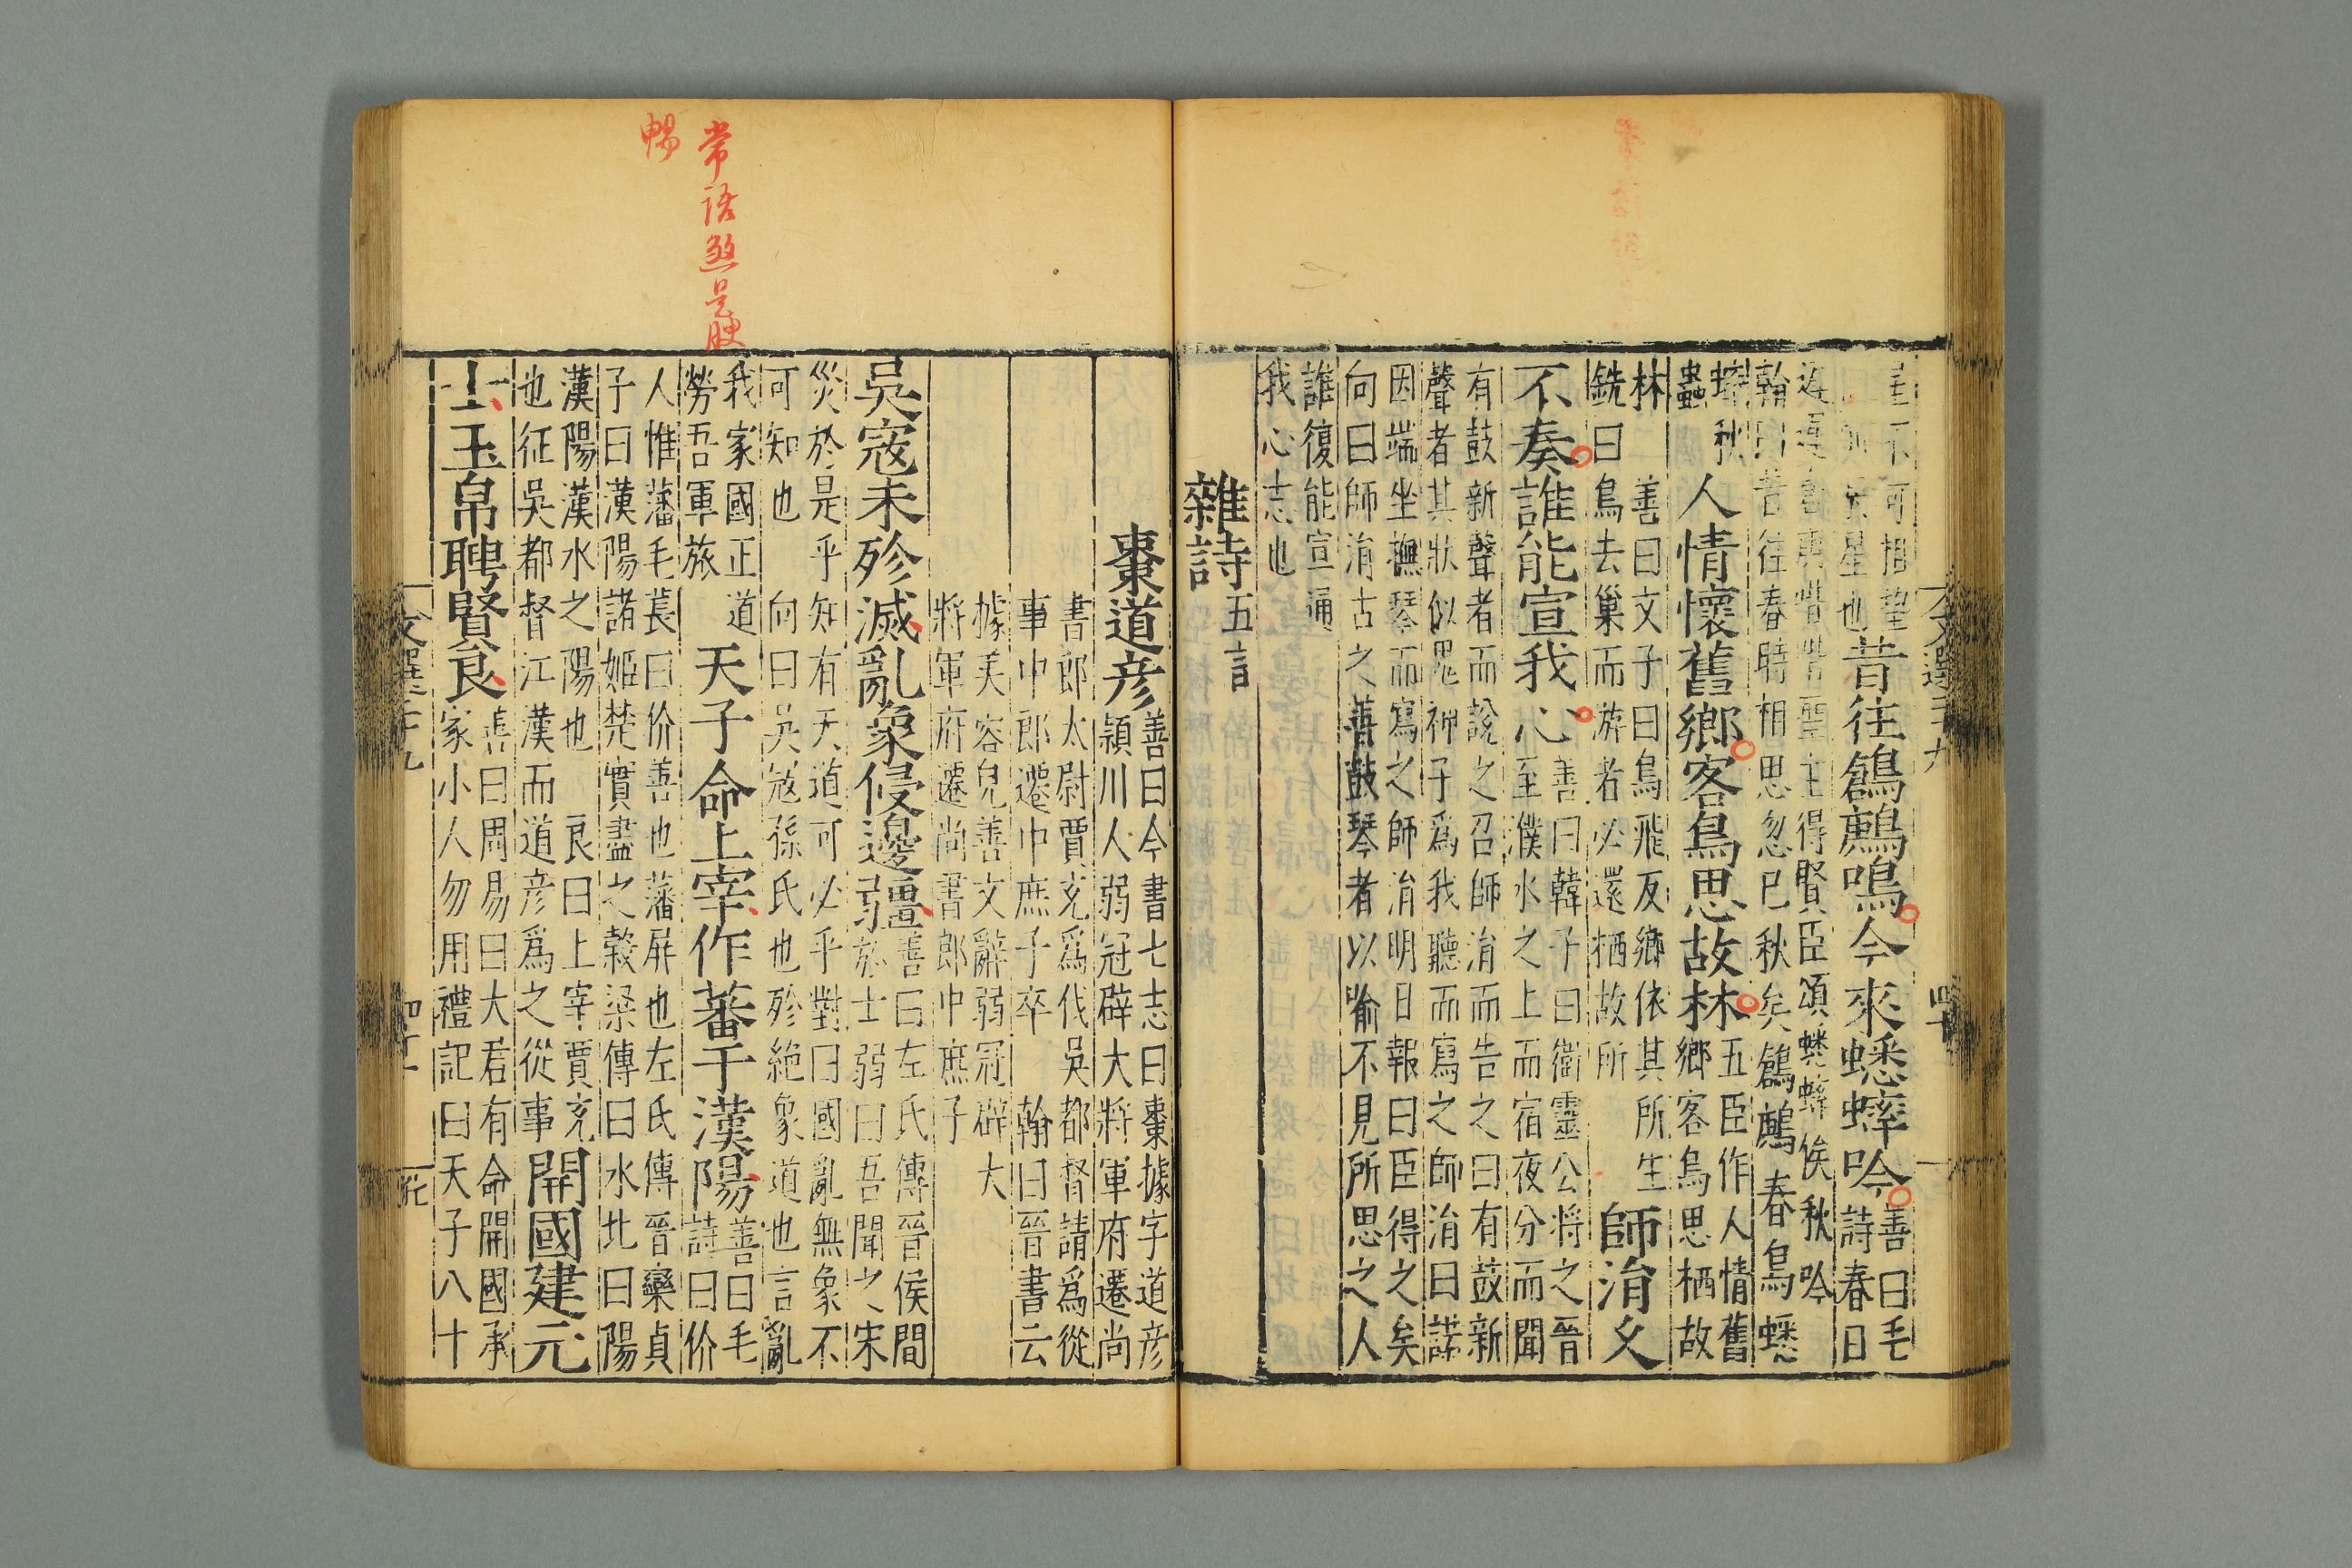 文選二十九
星不可指望
星也
昔往鶬鶊鳴今來蟋蟀吟
善曰毛
詩春日
遲遲倉庚喈喈聖主得賢臣頌蟋蟀俟秋吟
翰曰昔往春時相思忽已秋矣鶬鶊春鳥蟋
蟀秋
蟲
人情懷舊鄉客鳥思故林
五臣作人情舊
鄉客鳥思栖故
林善曰文子曰鳥飛反鄉依其所生
銑曰鳥去巢而游者必還栖故所
師涓久
不奏誰能宣我心
善曰韓子曰衛靈公將之晉
至濮水之上而宿夜分而聞
有鼓新聲者而說之召師涓而告之曰有鼓新
聲者其狀似鬼神子爲我聽而寫之師涓曰諾
因端坐撫琴而寫之師涓明日報曰臣得之矣
向曰師涓古之善鼓琴者以喻不見所思之人
誰復能宣通
我心志也
雜詩五言
常語煞是腴
暢
棗道彥
善曰今書七志曰棗據字道彥
潁川人弱冠辟大將軍府遷尚
書郎太尉賈充爲伐吳都督請爲從
事中郎遷中庶子卒 翰曰晉書云
據美容皃善文辭弱冠辟大
將軍府遷尚書郎中庶子
吳寇未殄滅亂象侵邊疆
善曰左氏傳晉侯間
於士弱曰吾聞之宋
災於是乎知有天道可必乎對曰國亂無象不
可知也 向曰吳寇孫氏也殄絶象道也言亂
我家國正道
勞吾軍旅
天子命上宰作蕃于漢陽
善曰毛
詩曰价
人惟藩毛萇曰价善也藩屏也左氏傳晉欒貞
子曰漢陽諸姬楚實盡之穀梁傳曰水北曰陽
漢陽漢水之陽也 良曰上宰賈充
也征吳都督江漢而道彥爲之從事
開國建元
士玉帛聘賢良
善曰周易曰大君有命開國承
家小人勿用禮記曰天子八十
文選二十九